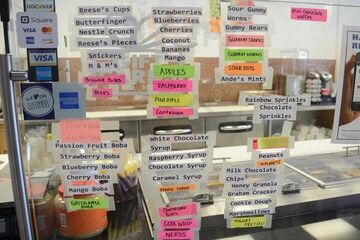 Square
VISA
DISCOVER
VISA
Reese's Cups
Butterfinger
Nestle Crunch
Reese's Pieces
Snickers
M & M's
Brownie Bites
Strawberries
Blueberries
Cherries
Coconut
Bananas
Mango
APPLES
RASPBERRY
PINEAPPLE
Sour Gummy
Worms
Gummy Bears
GUMMI WORMS
SOUR DOTS
Ande's Mints
Mini Chocolate
WAFFLES
Passion Fruit Boba
Strawberry Boba
Blueberry Boba
Cherry Boba
Mango Boba
GREEN APPLE
White Chocolate
Syrup
Raspberry Syrup
Chocolate Syrup
Caramel Syrup
MAPLE SYRUP
COOL WHIP
NERDS
Rainbow Sprinkles
Chocolate
Sprinkles
Peanuts
Milk Chocolate
Chips
Honey Graham
Cereal
Cookie Dough
Marshmallow
YOGURT PRETZEL